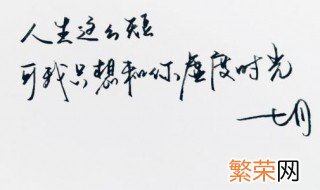 人生这么短
可我只想和你虚度时光
七月
繁荣网